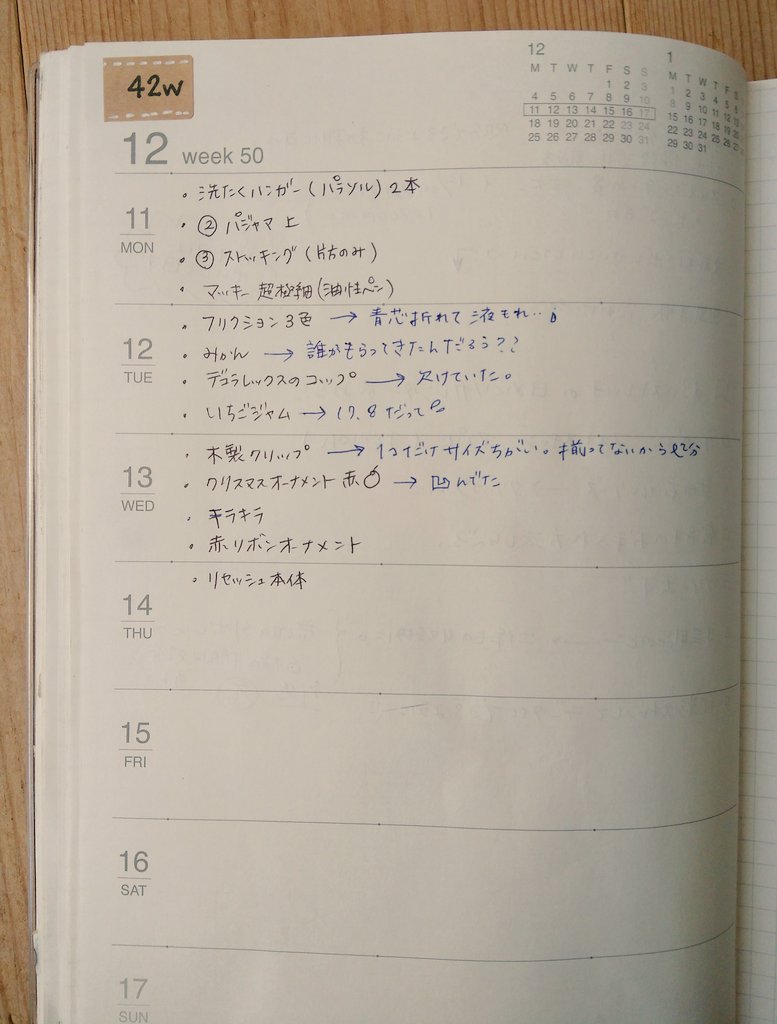 42w
12 week 50
12
M T W T F S S
1 2 3
4 5 6 7 8 9 10
11 12 13 14 15 16 17
18 19 20 21 22 23 24
25 26 27 28 29 30 31
1
M T W T F S
1 2 3 4 5 6
8 9 10 11 12 13
15 16 17 18 19 20
22 23 24 25 26 27
29 30 31
11
MON
・洗たくハンガー(パラソル)2本
・② パジャマ 上
・③ ストッキング(片方のみ)
・マッキー 超極細(油性ペン)
12
TUE
・フリクション3色 → 青芯折れて液もれ‥
・みかん → 誰がもらってきたんだろう??
・デュラレックスのコップ → 欠けていた。
・いちごジャム → 17.8だって
13
WED
・木製クリップ → 1つだけサイズちがい。揃ってないから処分
・クリスマスオーナメント 赤 → 凹んでた
・キラキラ
・赤リボンオーナメント
14
THU
・リセッシュ本体
15
FRI
16
SAT
17
SUN